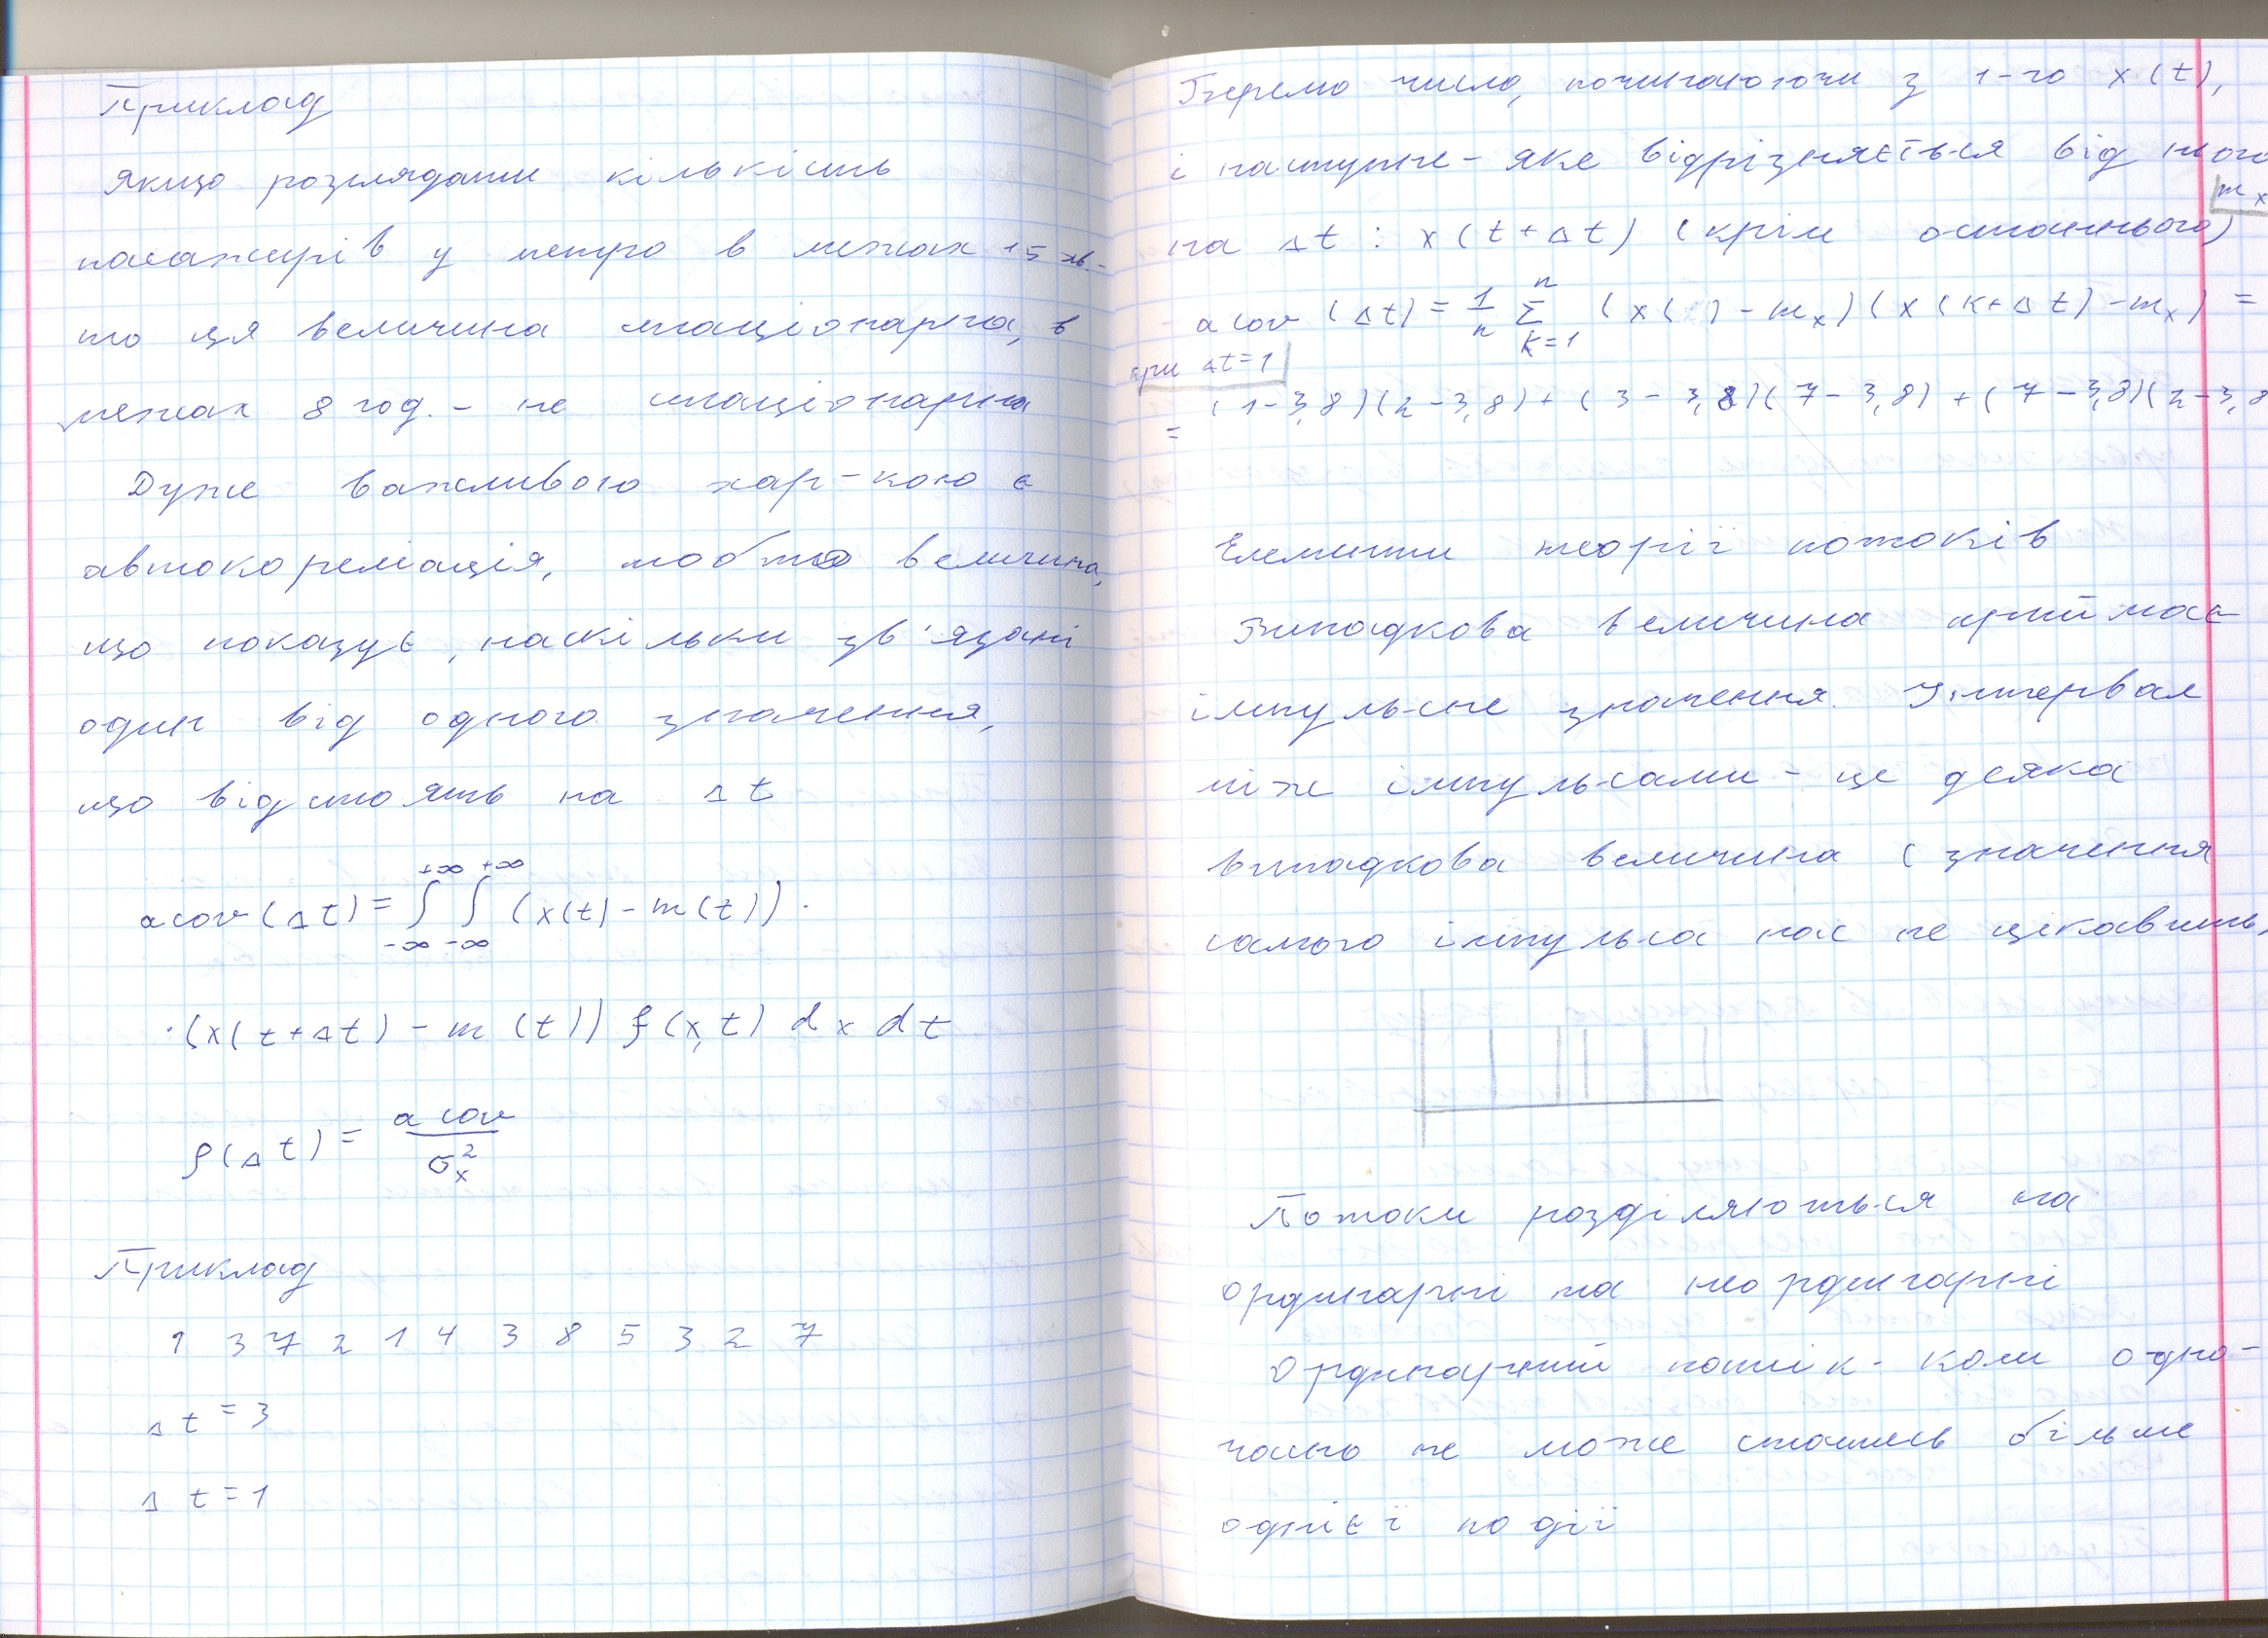 Приклад
Якщо розглядати кількість
пасажирів у метро в межах 15 хв.-
то ця величина стаціонарна, в
межах 8 год. - не стаціонарна
Дуже важливою хар-кою є
автокореляція, тобто величина,
що показує, наскільки зв'язані
один від одного значення,
що відстоять на Δt
acov(Δt) = ∫_{-∞}^{+∞} ∫_{-∞}^{+∞} (x(t) - m(t)) ·
· (x(t+Δt) - m(t)) f(x,t) dx dt
ρ(Δt) = acov / σ_x^2
Приклад
1 3 7 2 1 4 3 8 5 3 2 7
Δt = 3
Δt = 1
Беремо число, починаюочи з 1-го x(t),
і наступне - яке відрізняється від нього
m_x
на Δt : x(t+Δt) (крім останнього)
acov(Δt) = 1/n Σ_{k=1}^{n} (x( ) - m_x)(x(k+Δt) - m_x) =
при Δt=1
= (1-3,8)(2-3,8) + (3-3,8)(7-3,8) + (7-3,8)(2-3,8
Елементи теорії потоків
Випадкова величина приймає
імпульсне значення. Інтервал
між імпульсами - це деяка
випадкова величина (значення
самого імпульса нас не цікавить)
Потоки розділяються на
ординарні та неординарні
Ординарний потік - коли одно-
часно не може статись більше
однієї події